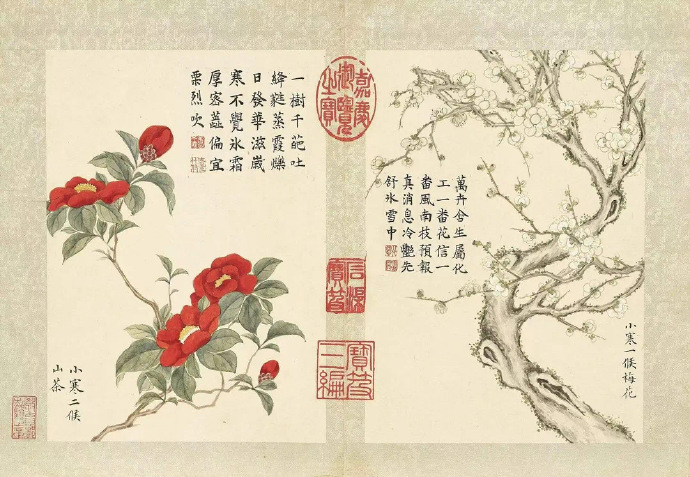 小寒一候梅花
萬卉含生屬化
工一番花信一
番風南枝預報
真消息冷艷先
舒冰雪中
嘉慶御覽之寶
石渠寶笈
寶笈三編
一樹千葩吐
絳蕤蒸霞爍
日發華滋歲
寒不覺冰霜
厚密蕊偏宜
栗烈吹
小寒二候
山茶